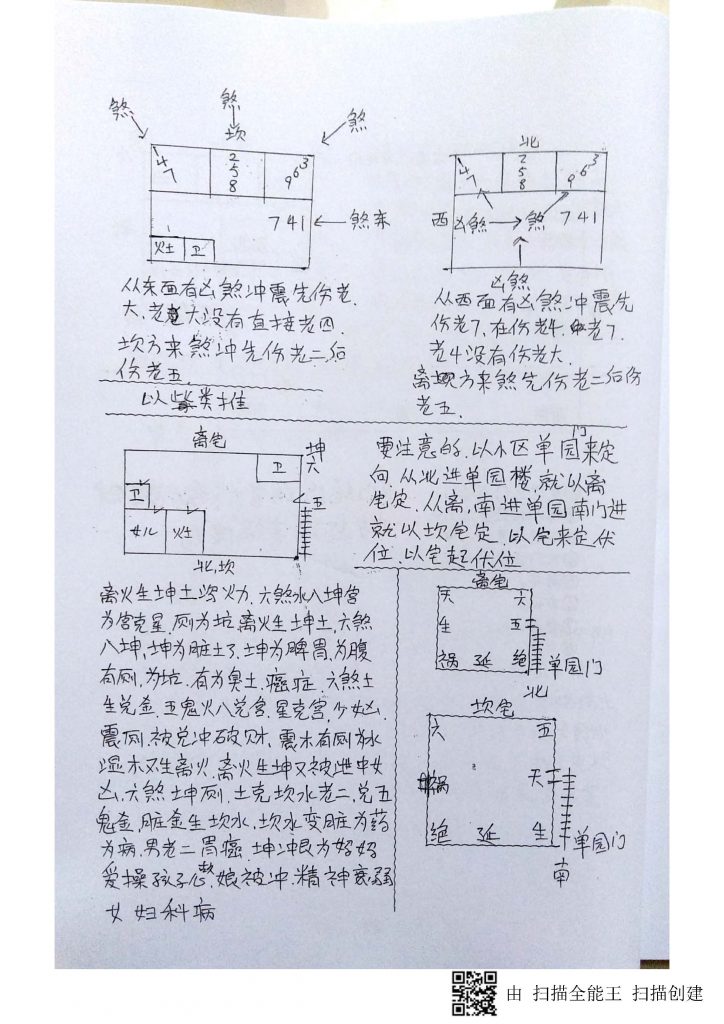 煞
煞
煞
坎
1 4 7
2 5 8
3 6 9
7 4 1
煞东
灶 卫
从东面有凶煞冲震先伤老
大.老大没有直接老四.
坎方来煞冲先伤老二后
伤老五.
以此类推
北
1 4 7
2 5 8
3 6 9
西凶煞
煞
7 4 1
凶煞
从西面有凶煞冲震先
伤老7.在伤老4.老7.
老4没有伤老大.
离方来煞先伤老二后伤
老五.
离宅
坤
六
卫
五
卫
女儿
灶
北.坎
要注意的.以小区单园门来定
向.从北进单园楼.就以离
宅定.从离.南进单园南门进
就以坎宅定.以宅来定伏
位.以宅起伏位
离火生坤土为火力.六煞水入坤宫
为宫克星.厕为坑.离火生坤土.六煞
入坤.坤为脏土了.坤为脾胃.为腹
有厕.为坑.有为臭土.癌症.六煞土
生兑金.五鬼火入兑宫.星克宫.少女凶.
震厕.被兑冲破财.震木有厕为水
湿木不生离火.离火生坤又被泄中女
凶.六煞坤厕.土克坎水老二.兑五
鬼金.脏金生坎水.坎水变脏为药
为病.男老二胃癌.坤冲艮为好妈
爱操孩子愁.娘被冲.精神衰弱
女妇科病
离宅
天 六
生 五
祸 延 绝
单园门
北
坎宅
六 五
祸 天
绝 延 生
单园门
南
由 扫描全能王 扫描创建